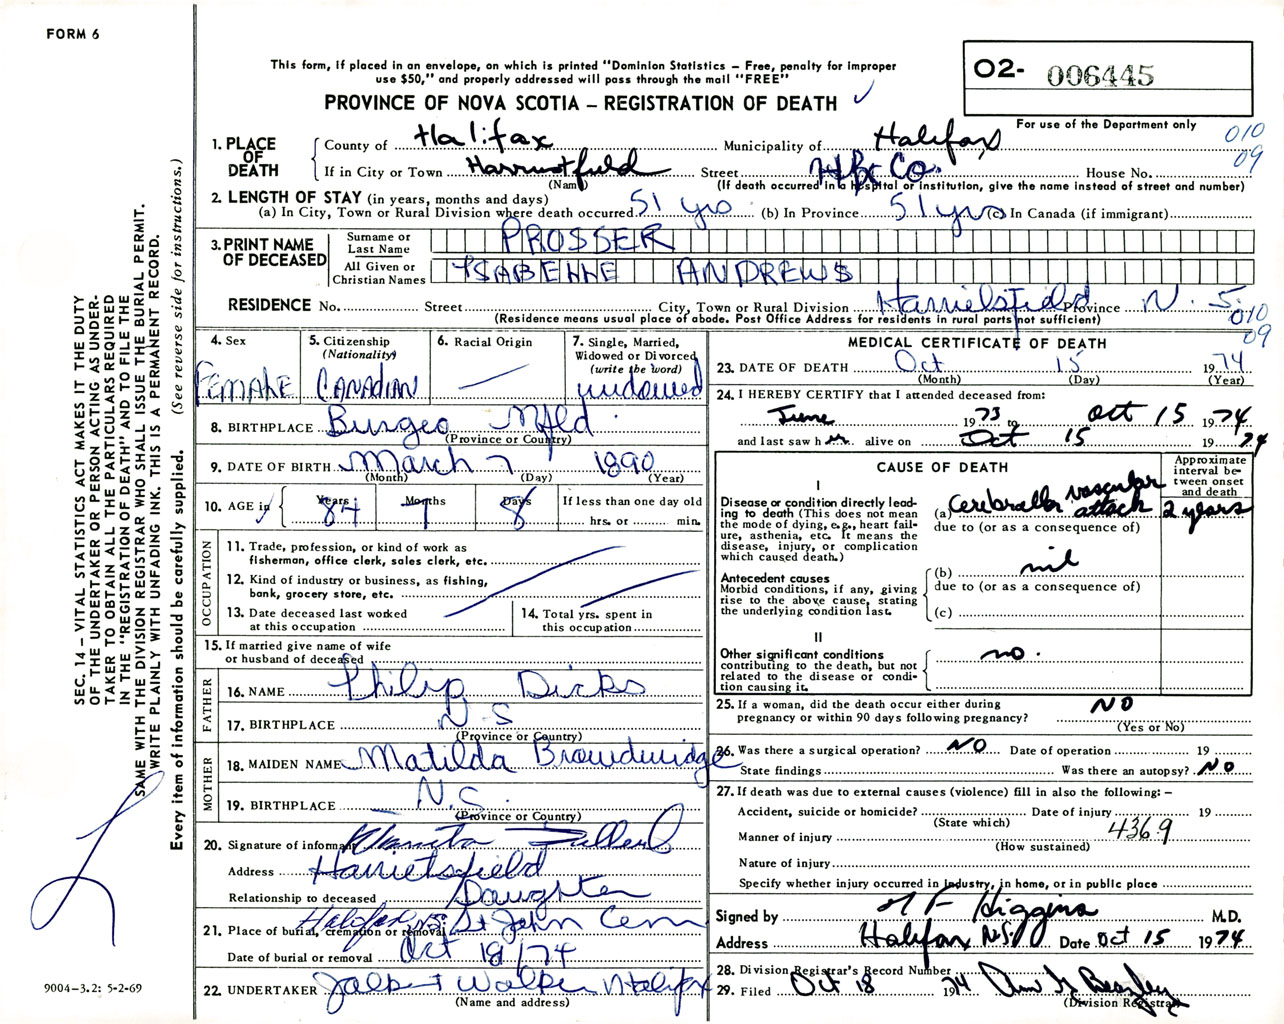 FORM 6
This form, if placed in an envelope, on which is printed "Dominion Statistics – Free, penalty for improper
use $50," and properly addressed will pass through the mail "FREE"
PROVINCE OF NOVA SCOTIA – REGISTRATION OF DEATH ✓
O2- 006445
For use of the Department only
010
09
1. PLACE OF DEATH
County of Halifax Municipality of Halifax
If in City or Town Harrietsfield Street Hfx Co. House No.
(Name) (If death occurred in a hospital or institution, give the name instead of street and number)
2. LENGTH OF STAY (in years, months and days)
(a) In City, Town or Rural Division where death occurred 51 yrs (b) In Province 51 yrs (c) In Canada (if immigrant)
3. PRINT NAME OF DECEASED
Surname or Last Name PROSSER
All Given or Christian Names YSABELLE ANDREWS
RESIDENCE No. Street City, Town or Rural Division Harrietsfield Province N. S.
(Residence means usual place of abode. Post Office Address for residents in rural parts not sufficient)
010
09
4. Sex FEMALE
5. Citizenship (Nationality) CANADIAN
6. Racial Origin —
7. Single, Married, Widowed or Divorced (write the word) widowed
8. BIRTHPLACE Burgeo Nfld
(Province or Country)
9. DATE OF BIRTH March 7 1890
(Month) (Day) (Year)
10. AGE in Years 84 Months 7 Days 8
If less than one day old
hrs. or min.
OCCUPATION
11. Trade, profession, or kind of work as
fisherman, office clerk, sales clerk, etc.
12. Kind of industry or business, as fishing,
bank, grocery store, etc.
13. Date deceased last worked
at this occupation
14. Total yrs. spent in
this occupation
15. If married give name of wife
or husband of deceased
FATHER
16. NAME Philip Dicks
17. BIRTHPLACE N.S
(Province or Country)
MOTHER
18. MAIDEN NAME Matilda
19. BIRTHPLACE N.S.
(Province or Country)
20. Signature of informant
Address Harrietsfield
Relationship to deceased Daughter
21. Place of burial, cremation or removal Halifax, NS St John Cem
Date of burial or removal Oct 18/74
22. UNDERTAKER Walker Halifax
(Name and address)
MEDICAL CERTIFICATE OF DEATH
23. DATE OF DEATH Oct 15 1974
(Month) (Day) (Year)
24. I HEREBY CERTIFY that I attended deceased from:
June 1973 to Oct 15 1974
and last saw her alive on Oct 15 1974
CAUSE OF DEATH
Approximate interval between onset and death
I
Disease or condition directly lead-
ing to death (This does not mean
the mode of dying, e.g., heart fail-
ure, asthenia, etc. It means the
disease, injury, or complication
which caused death.)
(a) Cerebralla vascular attack 2 years
due to (or as a consequence of)
Antecedent causes
Morbid conditions, if any, giving
rise to the above cause, stating
the underlying condition last.
(b) nil
due to (or as a consequence of)
(c)
II
Other significant conditions
contributing to the death, but not
related to the disease or condi-
tion causing it.
no.
25. If a woman, did the death occur either during
pregnancy or within 90 days following pregnancy? NO
(Yes or No)
26. Was there a surgical operation? NO Date of operation 19
State findings Was there an autopsy? NO
27. If death was due to external causes (violence) fill in also the following: –
Accident, suicide or homicide? Date of injury 19
(State which)
Manner of injury 436.9
(How sustained)
Nature of injury
Specify whether injury occurred in industry, in home, or in public place
Signed by Higgins M.D.
Address Halifax N.S. Date Oct 15 1974
28. Division Registrar's Record Number
29. Filed Oct 18 1974
(Division Registrar)
SEC. 14 – VITAL STATISTICS ACT MAKES IT THE DUTY
OF THE UNDERTAKER OR PERSON ACTING AS UNDER-
TAKER TO OBTAIN ALL THE PARTICULARS REQUIRED
IN THE "REGISTRATION OF DEATH" AND TO FILE THE
SAME WITH THE DIVISION REGISTRAR WHO SHALL ISSUE THE BURIAL PERMIT.
WRITE PLAINLY WITH UNFADING INK. THIS IS A PERMANENT RECORD.
Every item of information should be carefully supplied. (See reverse side for instructions.)
9004-3.2: 5-2-69